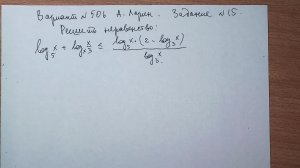 Вариант №506 А. Ларин. Задание №15.
Решить неравенство:
log₅ x + log x/3 ≤ log₅ x · (2 - log₃ x)
log₃ x